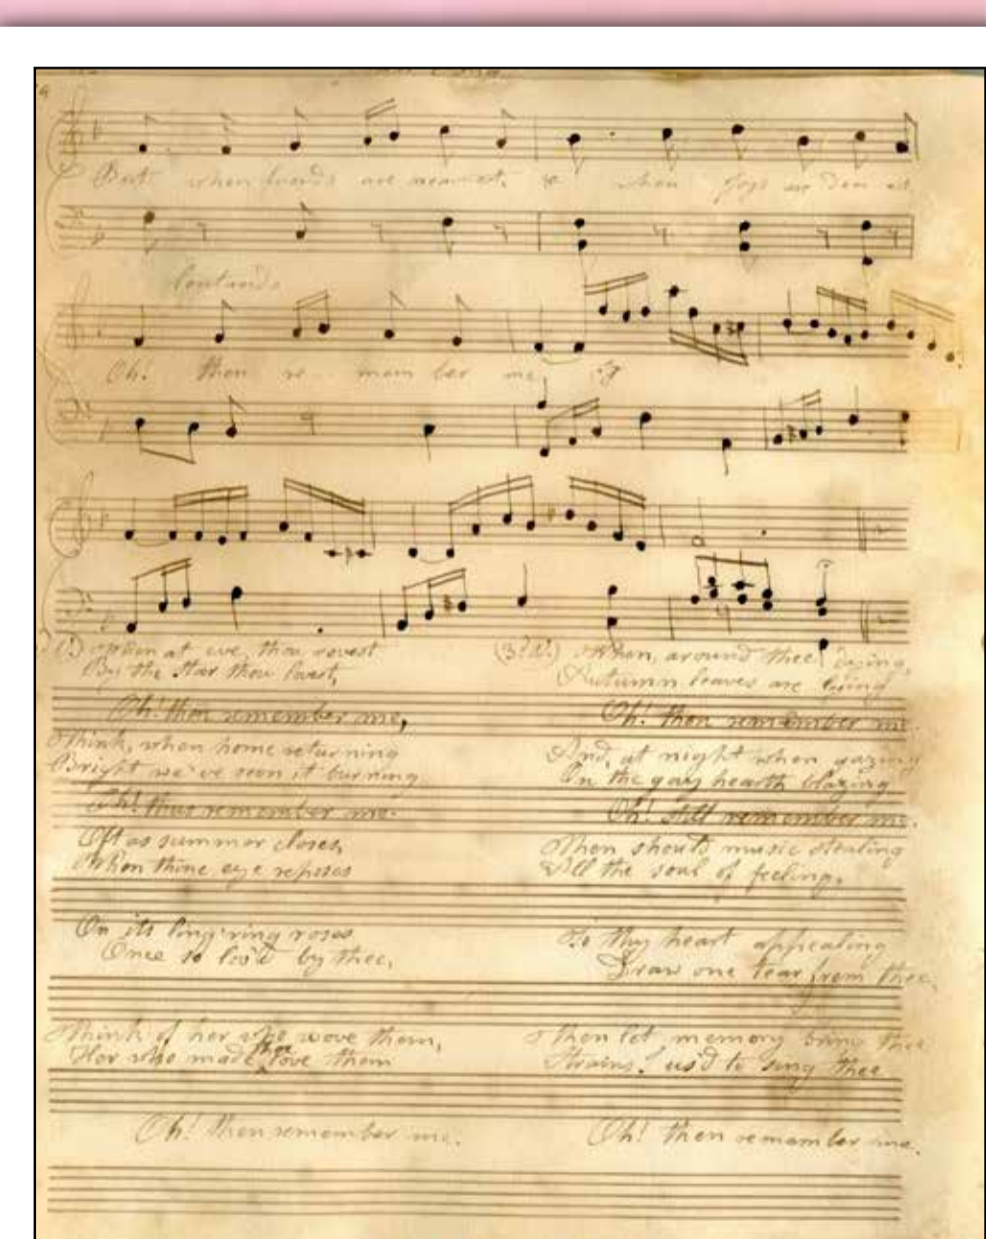 But when friends are nearest, & when joys are dearest
Oh! then re mem ber me,
When at eve, thou rovest
By the Star thou lovest,
Oh! then remember me,
Think, when home returning
Bright we've seen it burning
Oh! thus remember me.
Oft as summer closes,
When thine eye reposes
On its ling'ring roses
Once so lov'd by thee,
Think of her who wove them,
Her who made thee love them
Oh! then remember me.
When, around thee dying,
Autumn leaves are lying
Oh! then remember me.
And, at night when gazing
On the gay hearth blazing
Oh! still remember me.
Then should music stealing
All the soul of feeling,
To thy heart appealing
Draw one tear from thee,
Then let memory bring thee
Strains I us'd to sing thee
Oh! then remember me.